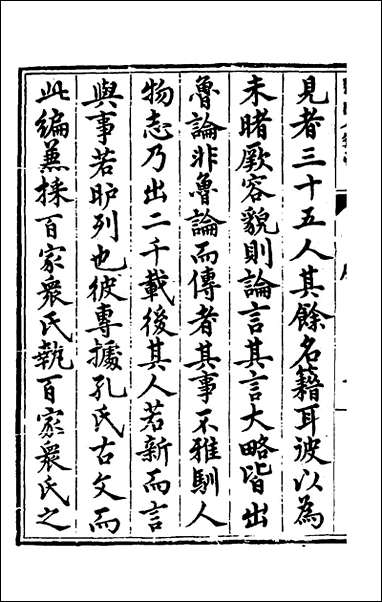 見者三十五人其餘名籍耳彼以為
未睹厥容貌則論言其言大略皆出
魯論非魯論而傳者其事不雅馴人
物志乃出二千載後其人若新而言
與事若眎列也彼專據孔氏古文而
此編兼採百家眾氏執百家眾氏之